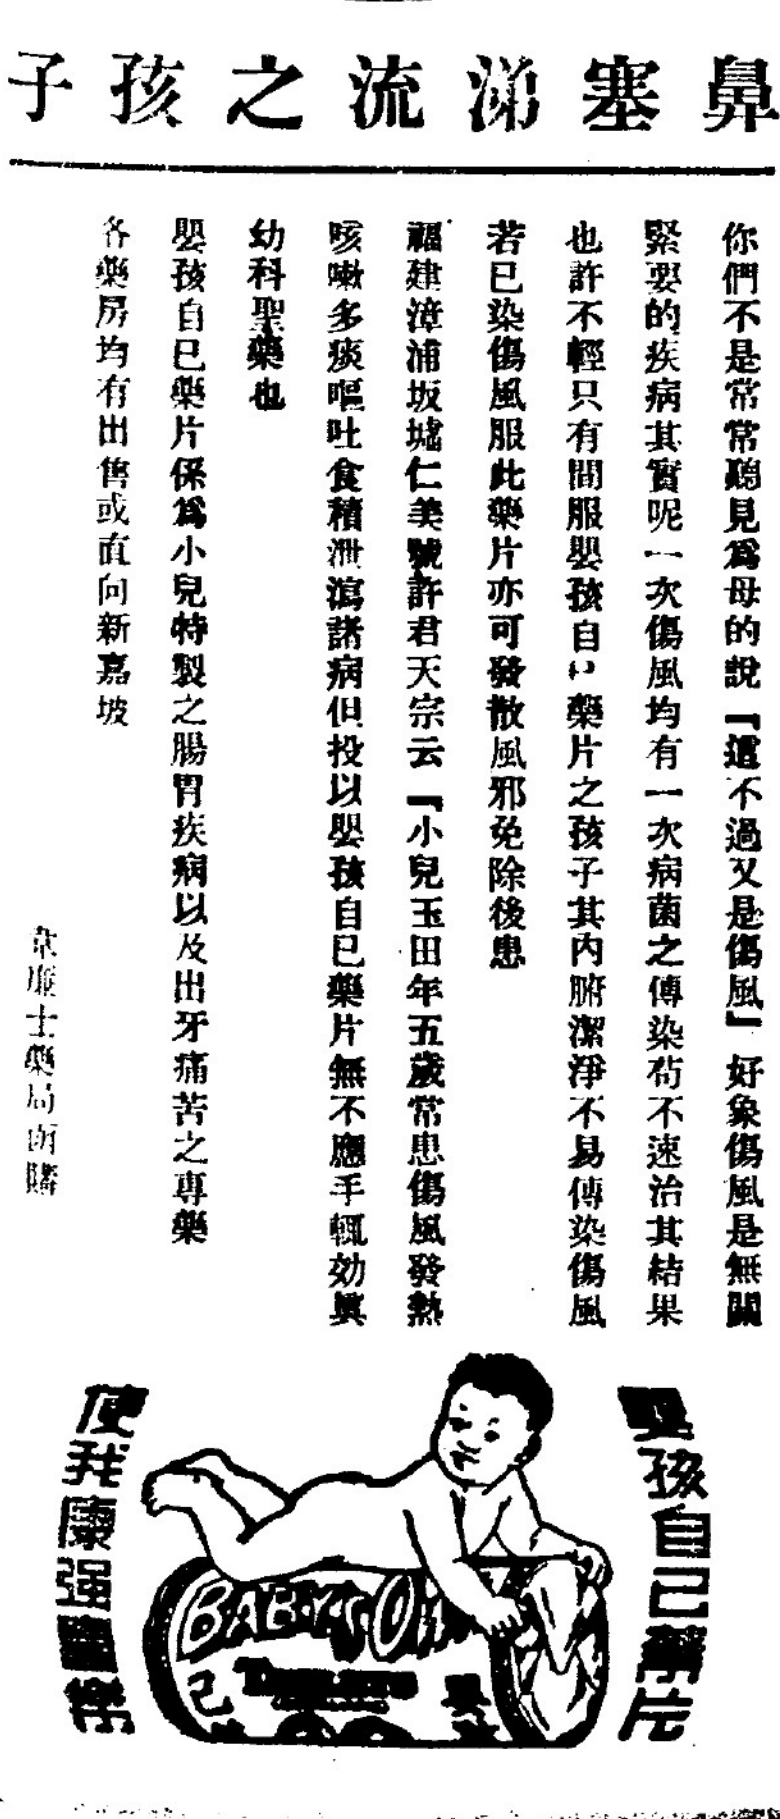 鼻塞涕流之孩子
你們不是常常聽見爲母的說『這不過又是傷風』好象傷風是無關
緊要的疾病其實呢一次傷風均有一次病菌之傳染苟不速治其結果
也許不輕只有間服嬰孩自己藥片之孩子其內腑潔淨不易傳染傷風
若已染傷風服此藥片亦可發散風邪免除後患
福建漳浦坂墟仁美號許君天宗云『小兒玉田年五歲常患傷風發熱
咳嗽多痰嘔吐食積泄瀉諸病但投以嬰孩自己藥片無不應手輒効眞
幼科聖藥也
嬰孩自己藥片係爲小兒特製之腸胃疾病以及出牙痛苦之專藥
各藥房均有出售或直向新嘉坡
韋廉士藥局函購
嬰孩自己藥片
使我康强喜樂
BABY'S OWN
TABLETS
嬰
己